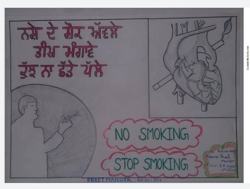 ਨਸ਼ੇ ਦੇ ਸ਼ੌਕ ਅੱਵਲੇ
ਭੀਖ ਮੰਗਾਵੇ
ਕੁੱਝ ਨਾ ਛੱਡੇ ਪੱਲੇ
NO SMOKING
STOP SMOKING